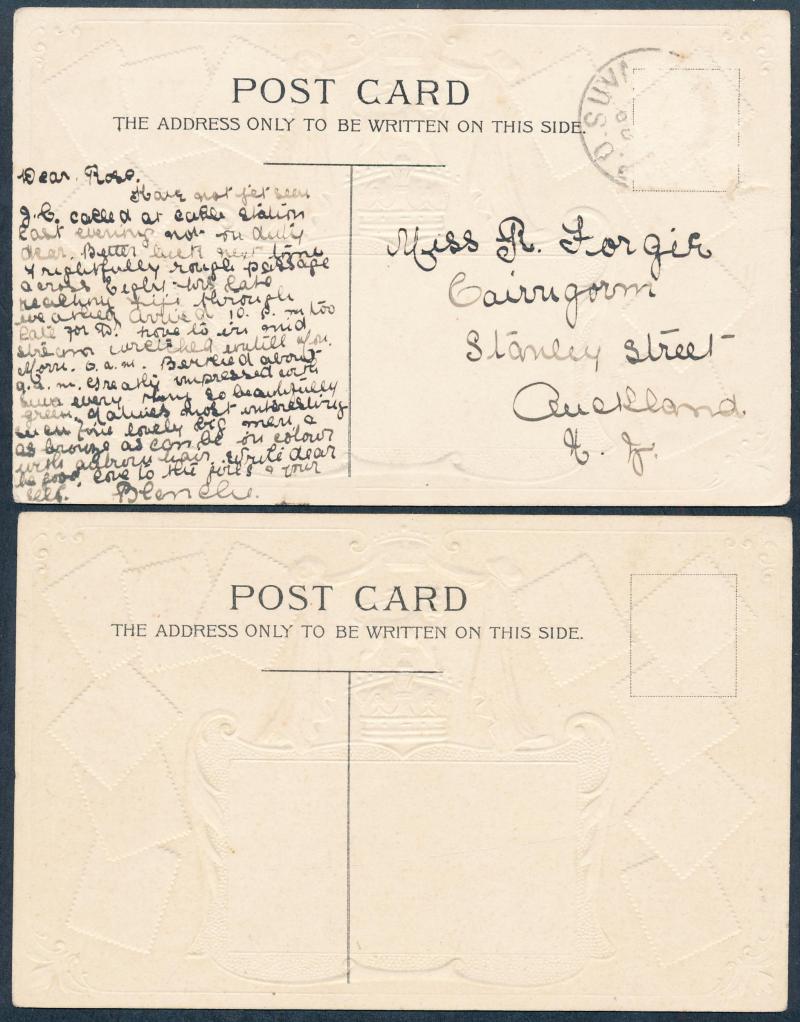 POST CARD
THE ADDRESS ONLY TO BE WRITTEN ON THIS SIDE.
O. SUVA
Dear Rose.
Have not jet seen
J. C. called at cable Station
last evening not on duty
dear. Better luck next time
Frightfully rough passage
across Eight hrs late
reaching through
arrived 10. P. m too
late for Dr. hove to in mid
stream wretched untill Mon.
Morn. 6. a.m. Berthed about
9. a. m. Greatly impressed with
Suva every thing so beautifully
green, natives most interesting
such fine lovely big men, &
as bronze as can be in colour
with auburn hair. Write dear
be good, love to the girls & your
self. Blenche.
Miss R. Forgie
Cairngorm
Stanley Street
Auckland
N. Z.
POST CARD
THE ADDRESS ONLY TO BE WRITTEN ON THIS SIDE.